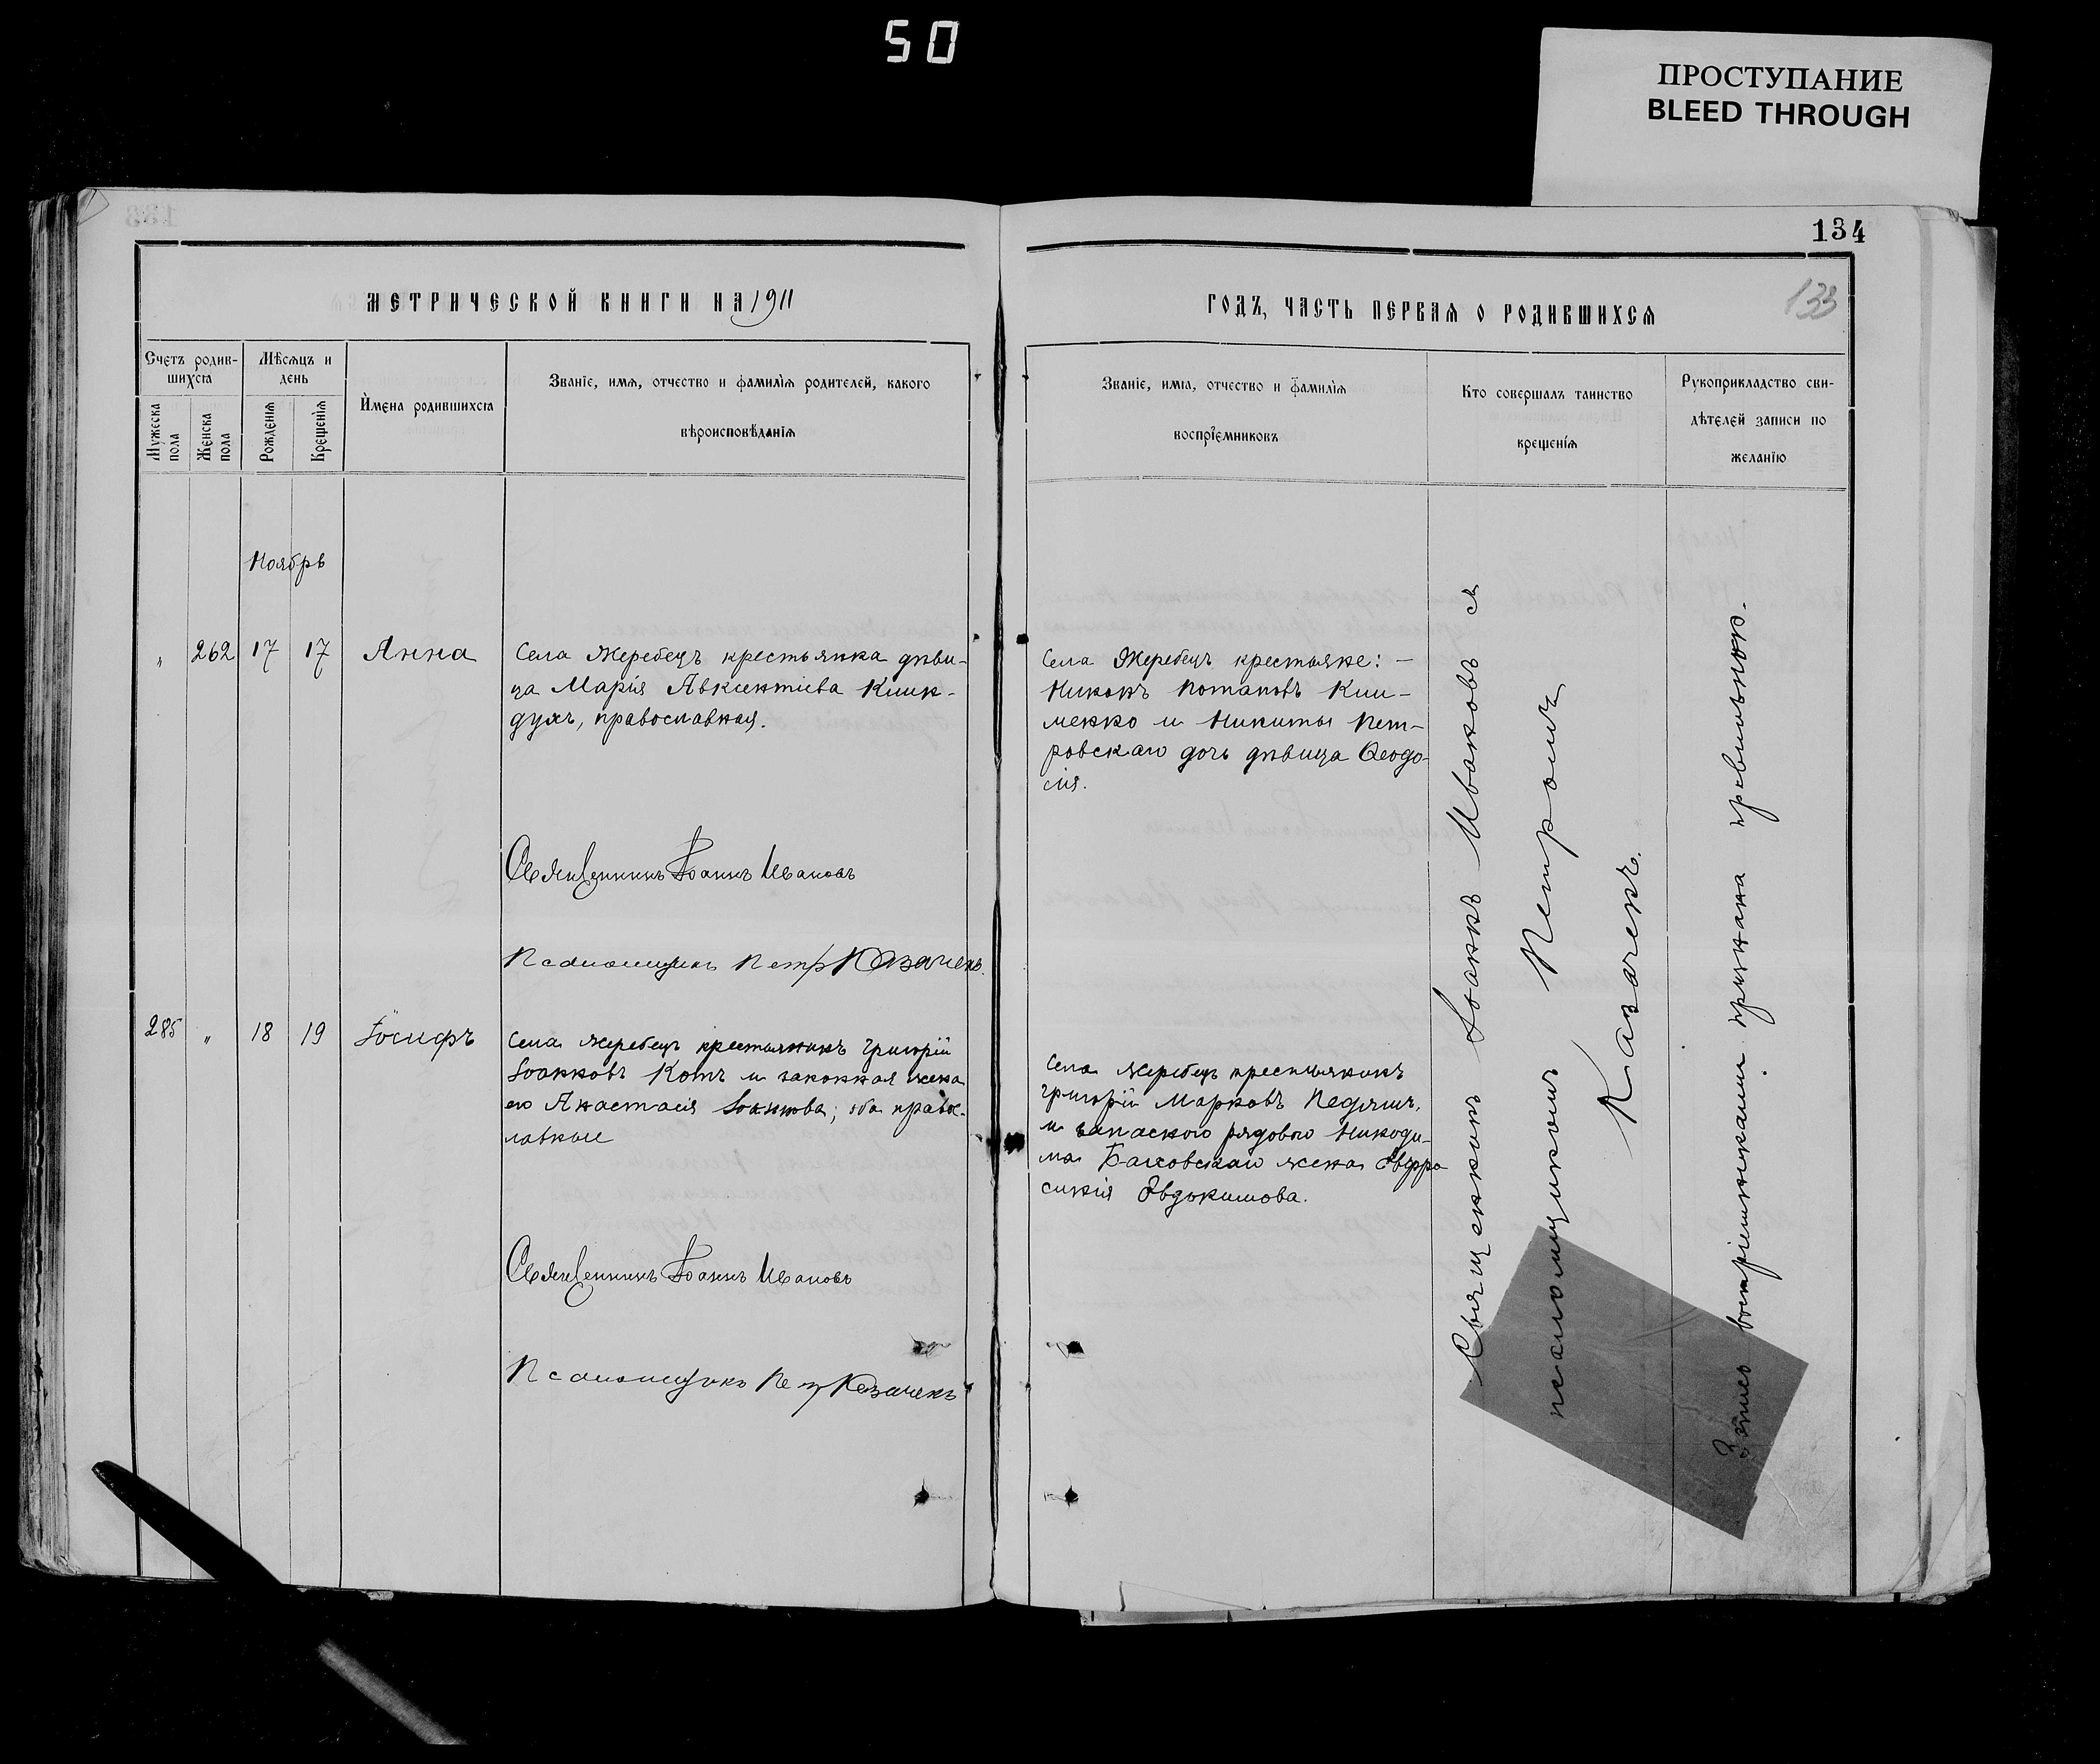 50
ПРОСТУПАНИЕ
BLEED THROUGH
134
133
МЕТРИЧЕСКОЙ КНИГИ НА 1911
ГОДЪ, ЧАСТЬ ПЕРВАЯ О РОДИВШИХСЯ
Счетъ родив-
шихся
Мужеска пола
Женска пола
Мѣсяцъ и
день
Рожденія
Крещенія
Имена родившихся
Званіе, имя, отчество и фамилія родителей, какого
вѣроисповѣданія
Званіе, имя, отчество и фамилія
воспріемниковъ
Кто совершалъ таинство
крещенія
Рукоприкладство сви-
дѣтелей записи по
желанію
Ноябрь
" 262 17 17 Анна
Села Жеребецъ крестьянка дѣви-
ца Марія Авксентіева
духъ, православная.
Села Жеребецъ крестьяне: –
Никонъ Потаповъ Кли-
менко и Никиты Пет-
ровскаго дочь дѣвица Ѳеодо-
сія.
Священникъ Іоаннъ Ивановъ
Псаломщикъ Петръ Казачекъ.
285 " 18 19 Іосифъ
Села Жеребецъ крестьянинъ Григорій
Іоанновъ Котъ и законная жена
его Анастасія Іоаннова; оба правос-
лавные
Села Жеребецъ крестьянинъ
Григорій Марковъ
и запаснаго рядового Никоди-
ма жена Евфро
синія Евдокимова.
Священникъ Іоаннъ Ивановъ
Псаломщикъ Петръ Казачекъ
Священникъ Іоаннъ Ивановъ съ
псаломщикомъ Петромъ
Казачекъ.
Запись воспріемниками признана правильною.